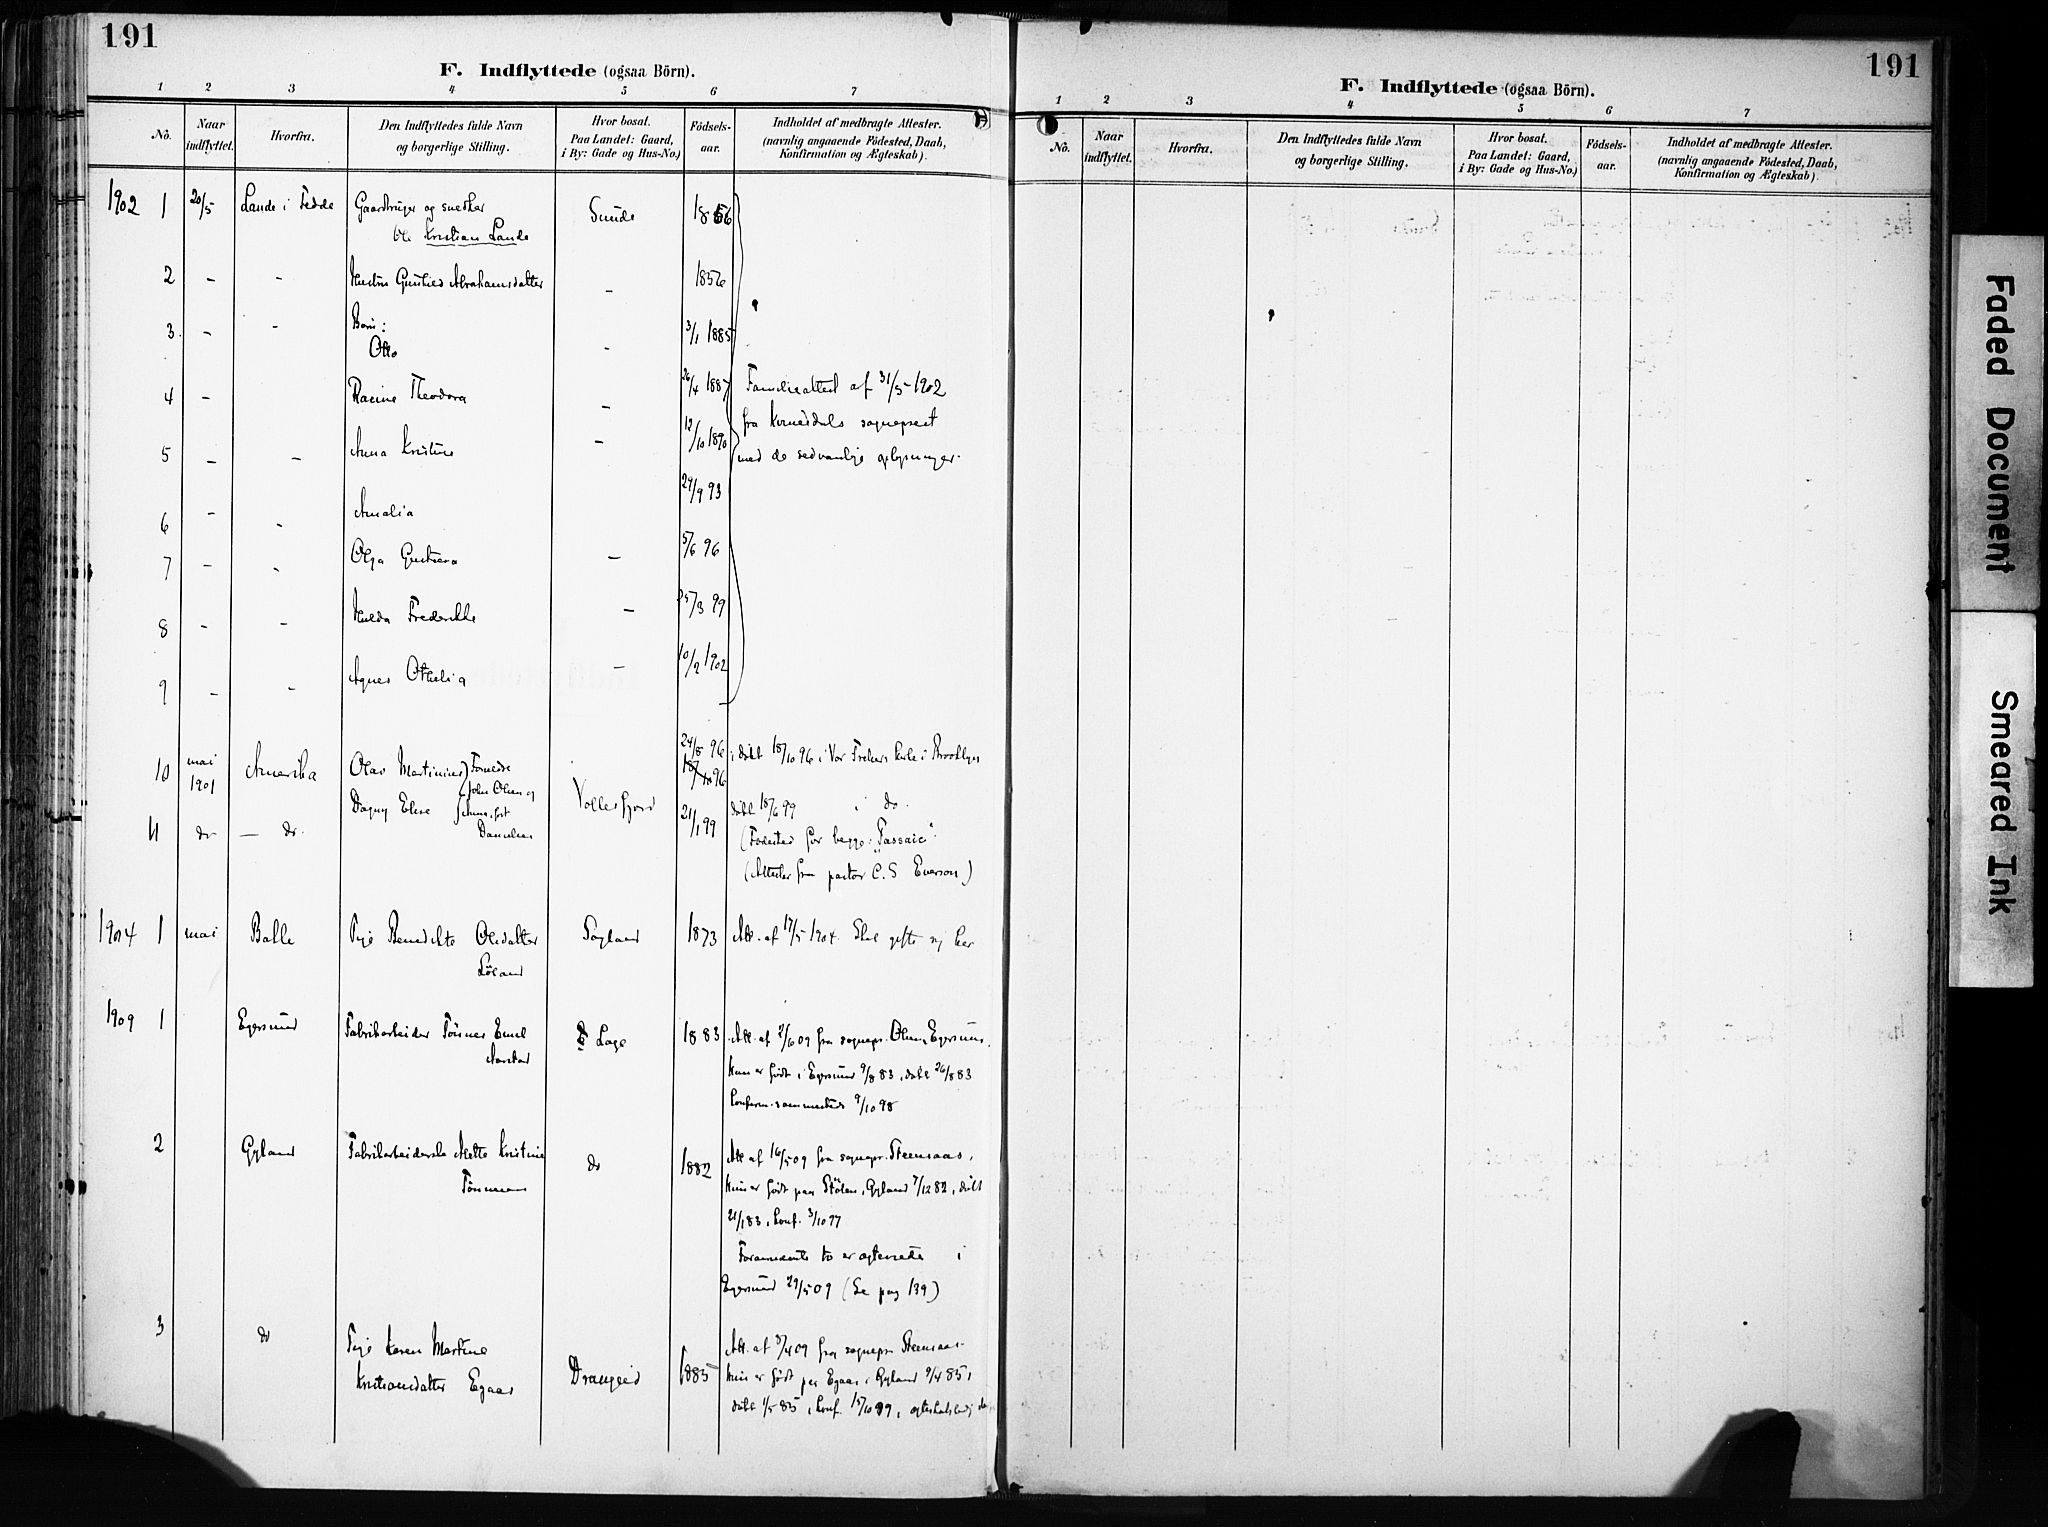 191
F. Indflyttede (ogsaa Börn).
1 2 3 4 5 6 7
No. Naar indflyttet. Hvorfra. Den Indflyttedes fulde Navn og borgerlige Stilling. Hvor bosat. Paa Landet: Gaard, i By: Gade og Hus-No.) Födsels-aar. Indholdet af medbragte Attester. (navnlig angaaende Födested, Daab, Konfirmation og Ægteskab).
1902 1 20/5 Lande i Fedde Gaardbruger og snedker Sunde 1856
Ole Kristian Lande
2 - - Hustru Gunhild Abrahamsdatter - 1856
3. - - Børn: 3/1 1885
Otto -
4 - Racine Theodora - 26/4 1887 Familieattest af 31/5 1902
fra Kvinesdals sogneprest
5 - - Anna Kristine - 12/10 1890 med de sedvanlige oplysninger.
6 - - Amalia 29/9 93
7 - - Olga Gustava - 5/6 96
8 - - Hulda Frederikke - 25/3 99
9 - - Agnes Othelia - 10/2 1902
10 mai 1901 Amerika Olav Martinius Forældre 24/8 96 døbt 18/10 96 i Vor Frelsers kirke i Brooklyn
18/10 96
John Olsen og
11 do — do. Dagny Elise Vollesfjord 21/1 99 døbt 18/6 99 i do.
Danielsen (Fødested for begge: "Passaic".
(Attester fra pastor C. S Everson)
1904 1 mai Bakke Pige Benedikte Olsdatter Søyland 1873 Att. af 17/5 1904. Skal gifte sig her
Løland
1909 1 Egersund Fabrikarbeider Tønnes Emil Loge 1883 Att. af 2/6 09 fra sognepr. Olsen, Egersund.
Aarstad Han er født i Egersund 9/8 83, døbt 26/8 83
konfirm. sammesteds 9/10 98
2 Gyland Fabrikarbeiderske Mette Kristine do 1882 Att af 16/5 09 fra sognepr. Steensaas,
Tønnesen Hun er født paa Stølen, Gyland 7/12 82, døbt
21/1 83, konf. 3/10 97
Forannævnte to er ægteviede i
Egersund 29/5 09 (Se pag 139)
3 do Pige Karen Martine Drangeid 1885 Att. af 3/4 09 fra sognepr Steensaas.
Kristiansdatter Egaas Hun er født paa Egaas i Gyland 9/4 85,
døbt 1/5 85, konf. 15/10 99,
191
F. Indflyttede (ogsaa Börn).
1 2 3 4 5 6 7
No. Naar indflyttet. Hvorfra. Den Indflyttedes fulde Navn og borgerlige Stilling. Hvor bosat. Paa Landet: Gaard, i By: Gade og Hus-No.) Födsels-aar. Indholdet af medbragte Attester. (navnlig angaaende Födested, Daab, Konfirmation og Ægteskab).
Faded Document
Smeared Ink